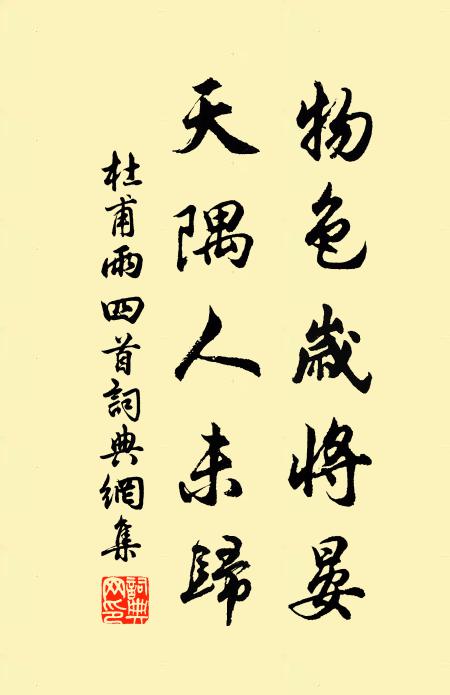 物色歲將晏
天隅人未歸
杜甫雨四首詞典網集
詞典網印